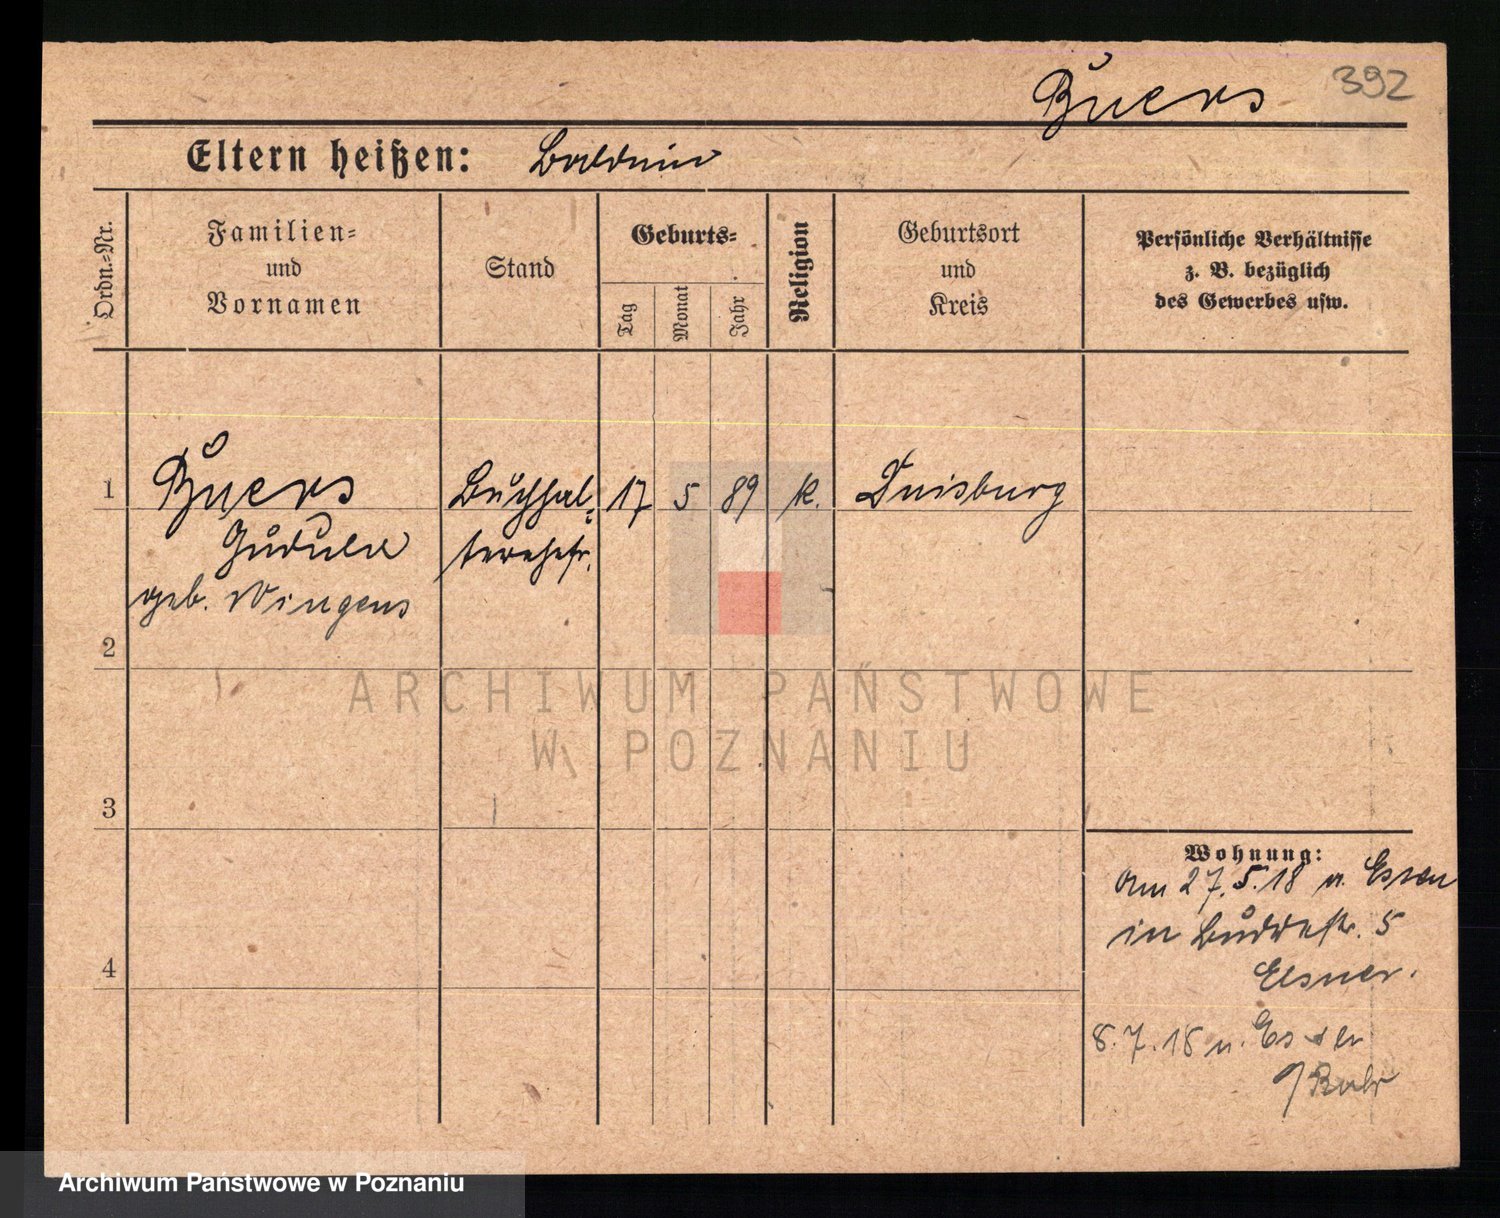 Buers 392
Eltern heißen: Balduin
Ordn.-Nr.
Familien-
und
Vornamen
Stand
Geburts-
Tag
Monat
Jahr
Religion
Geburtsort
und
Kreis
Persönliche Verhältnisse
z. B. bezüglich
des Gewerbes usw.
1 Buers Buchhal- 17 5 89 k. Duisburg
Gudula terehefr.
geb. Wingens
2
3
4
Wohnung:
Am 27.5.18 n. Essen
in 5
Elsner.
8.7.18 n. Essen
/Ruhr
ARCHIWUM PAŃSTWOWE
W POZNANIU
Archiwum Państwowe w Poznaniu